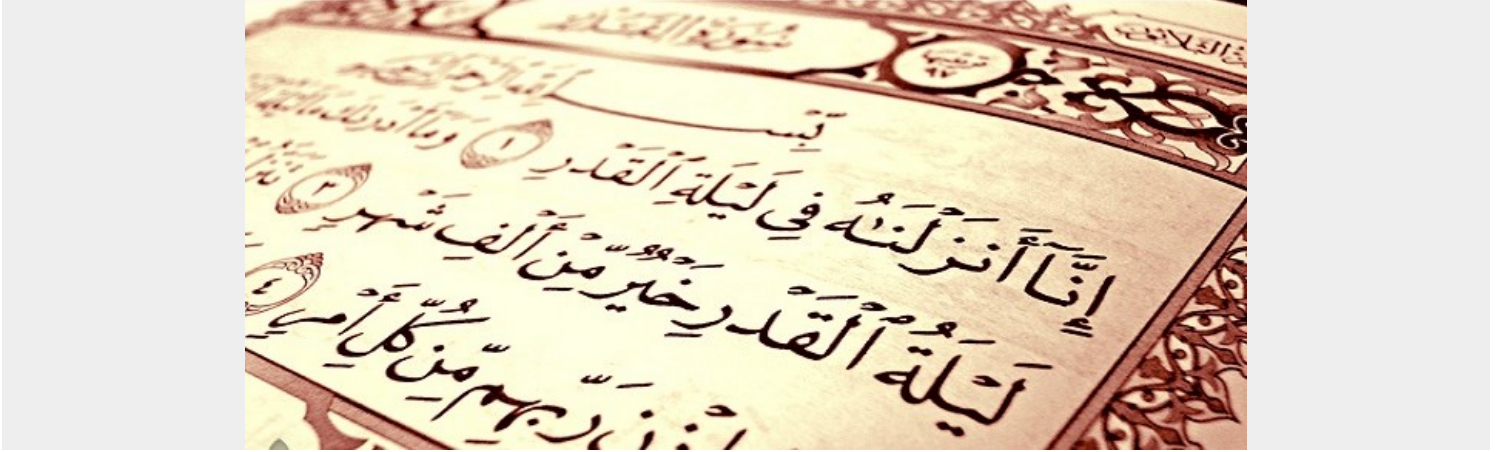 سُورَةُ القَدْرِ
بِسْمِ ٱللَّهِ ٱلرَّحْمَٰنِ ٱلرَّحِيمِ
إِنَّآ أَنزَلْنَٰهُ فِى لَيْلَةِ ٱلْقَدْرِ ١ وَمَآ أَدْرَىٰكَ مَا لَيْلَةُ
لَيْلَةُ ٱلْقَدْرِ خَيْرٌ مِّنْ أَلْفِ شَهْرٍ ٣ تَنَزَّلُ
رَبِّهِم مِّن كُلِّ أَمْرٍ ٤